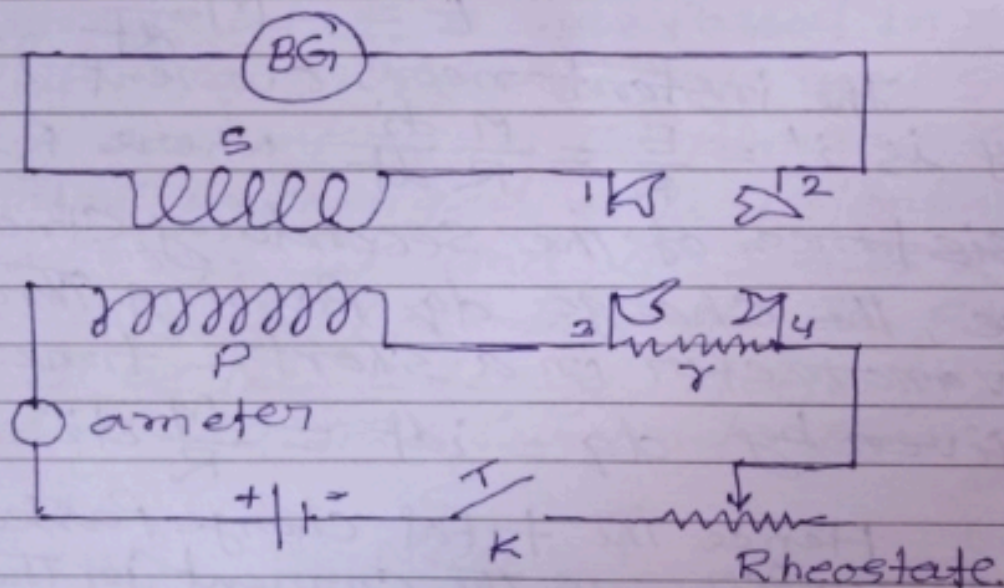 BG
S
1 2
3 4
P r
ameter
+ - T
K
Rheostate